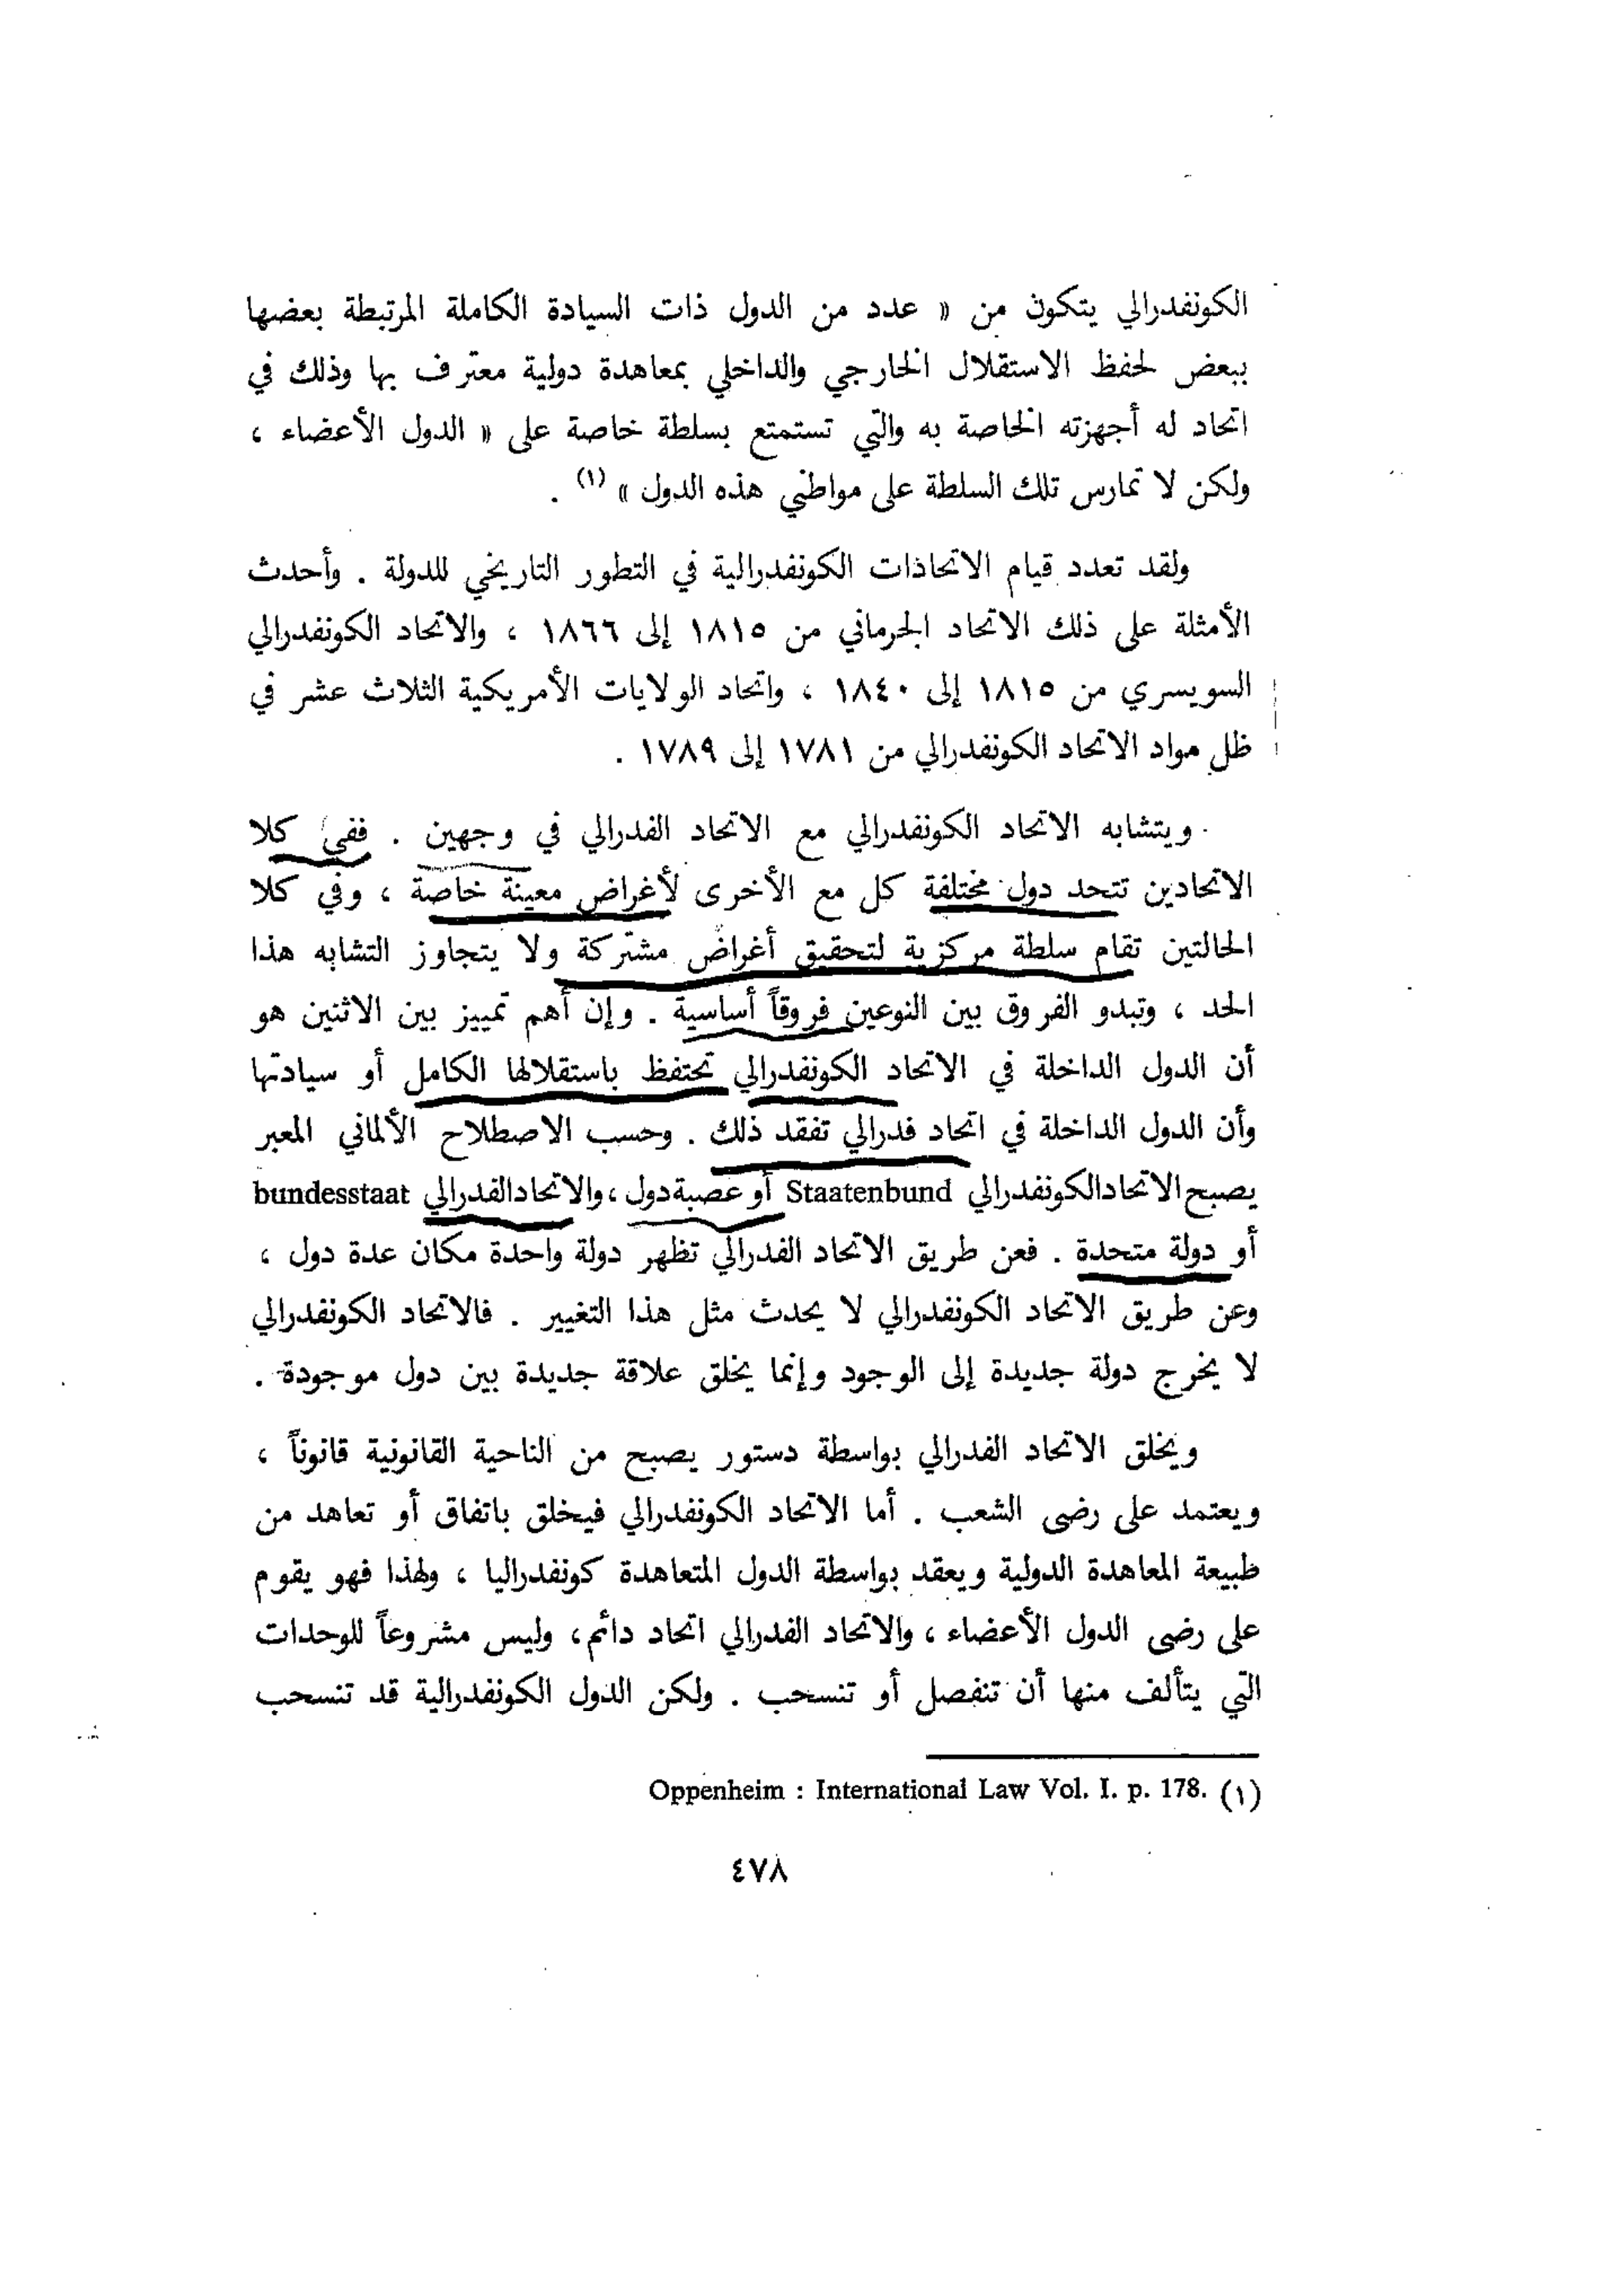 الكونفدرالي يتكون من « عدد من الدول ذات السيادة الكاملة المرتبطة بعضها
ببعض لحفظ الاستقلال الخارجي والداخلي بمعاهدة دولية معترف بها وذلك في
اتحاد له أجهزته الخاصة به والتي تستمتع بسلطة خاصة على « الدول الأعضاء ،
ولكن لا تمارس تلك السلطة على مواطني هذه الدول » (١) .
ولقد تعدد قيام الاتحاذات الكونفدرالية في التطور التاريخي للدولة . وأحدث
الأمثلة على ذلك الاتحاد الجرماني من ١٨١٥ إلى ١٨٦٦ ، والاتحاد الكونفدرالي
السويسري من ١٨١٥ إلى ١٨٤٠ ، واتحاد الولايات الأمريكية الثلاث عشر في
ظل مواد الاتحاد الكونفدرالي من ١٧٨١ إلى ١٧٨٩ .
ويتشابه الاتحاد الكونفدرالي مع الاتحاد الفدرالي في وجهين . ففي كلا
الاتحادين تتحد دول مختلفة كل مع الأخرى لأغراض معينة خاصة ، وفي كلا
الحالتين تقام سلطة مركزية لتحقيق أغراض مشتركة ولا يتجاوز التشابه هذا
الحد ، وتبدو الفروق بين النوعين فروقاً أساسية . وإن أهم تمييز بين الاثنين هو
أن الدول الداخلة في الاتحاد الكونفدرالي تحتفظ باستقلالها الكامل أو سيادتها
وأن الدول الداخلة في اتحاد فدرالي تفقد ذلك . وحسب الاصطلاح الألماني المعبر
يصبح الاتحاد الكونفدرالي Staatenbund أو عصبة دول ، والاتحاد الفدرالي bundesstaat
أو دولة متحدة . فعن طريق الاتحاد الفدرالي تظهر دولة واحدة مكان عدة دول ،
وعن طريق الاتحاد الكونفدرالي لا يحدث مثل هذا التغيير . فالاتحاد الكونفدرالي
لا يخرج دولة جديدة إلى الوجود وإنما يخلق علاقة جديدة بين دول موجودة .
ويخلق الاتحاد الفدرالي بواسطة دستور يصبح من الناحية القانونية قانوناً ،
ويعتمد على رضى الشعب . أما الاتحاد الكونفدرالي فيخلق باتفاق أو تعاهد من
طبيعة المعاهدة الدولية ويعقد بواسطة الدول المتعاهدة كونفدراليا ، ولهذا فهو يقوم
على رضى الدول الأعضاء ، والاتحاد الفدرالي اتحاد دائم ، وليس مشروعاً للوحدات
التي يتألف منها أن تنفصل أو تنسحب . ولكن الدول الكونفدرالية قد تنسحب
(١) Oppenheim : International Law Vol. I. p. 178.
٤٧٨